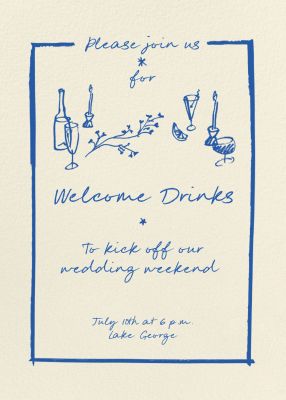 Please join us
*
for
Welcome Drinks
*
To kick off our
wedding weekend
July 10th at 6 p.m.
Lake George